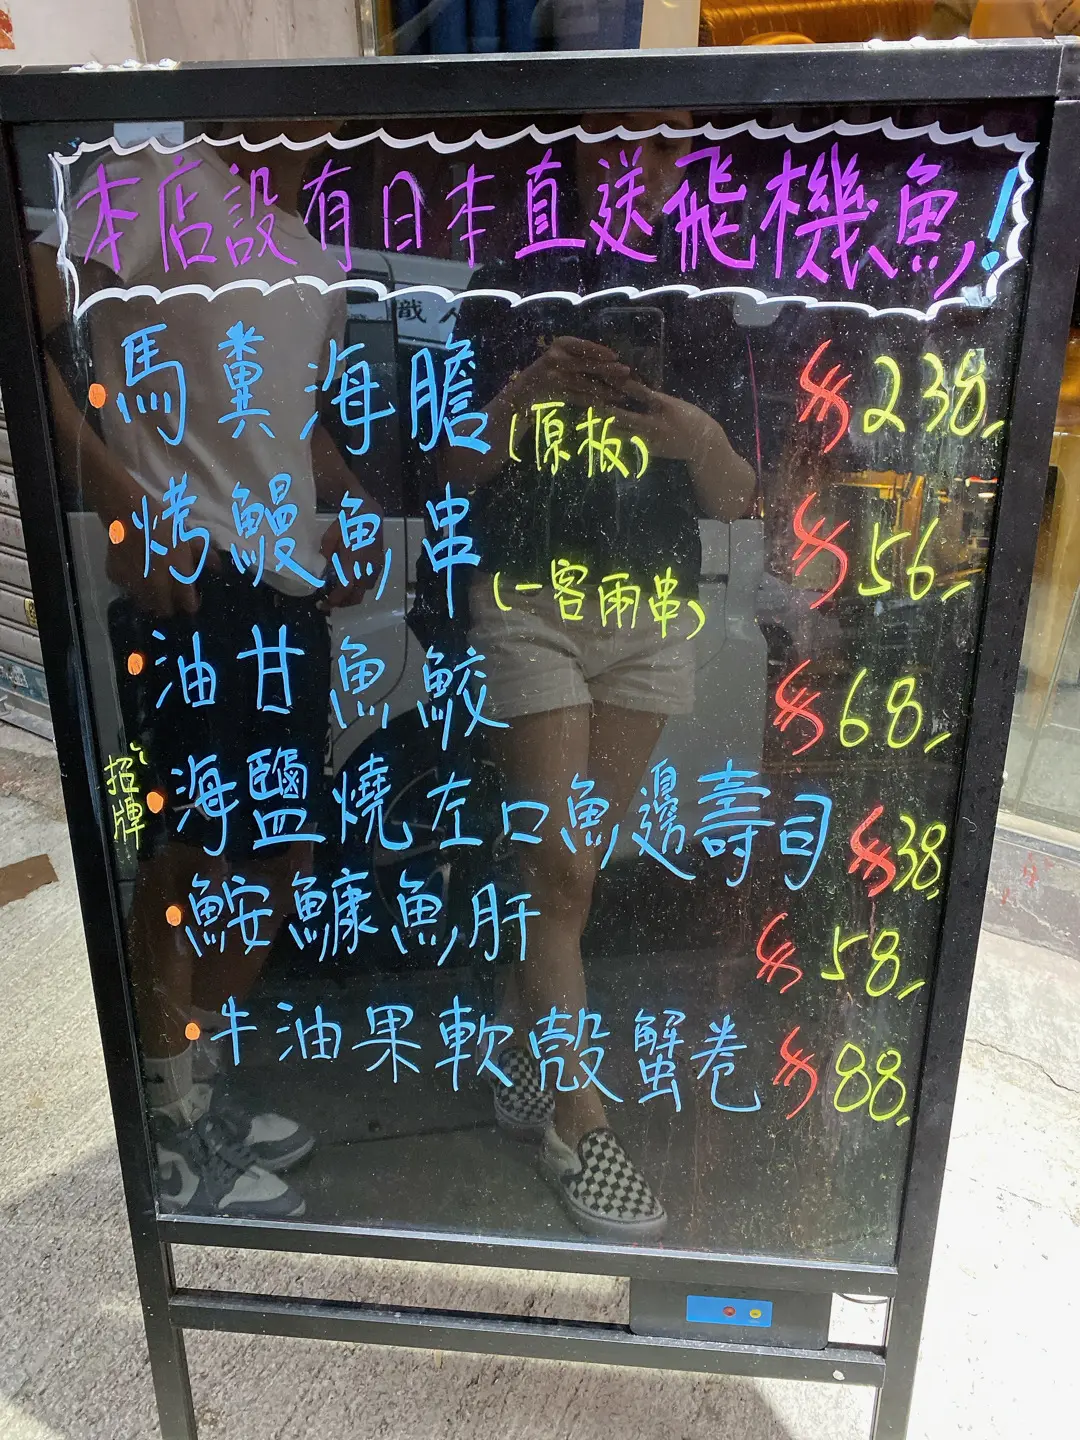 本店設有日本直送飛機魚!
馬糞海膽(原板) $238
烤鰻魚串(一客兩串) $56
油甘魚鮫 $68
招牌 海鹽燒左口魚邊壽司 $38
鮟鱇魚肝 $58
牛油果軟殼蟹卷 $88